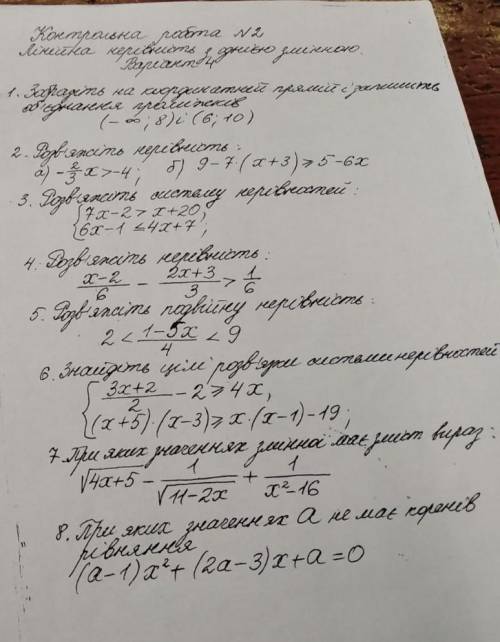 Контрольна робота №2
Лінійна нерівність з однією змінною.
Варіант 4
1. Зобразіть на координатній прямій і запишіть
об'єднання проміжків
(-∞; 8) і (6; 10)
2. Розв'яжіть нерівність:
а) -2/3 x > -4; б) 9-7·(x+3) ⩾ 5-6x
3. Розв'яжіть систему нерівностей:
{7x-2 > x+20,
{6x-1 ≤ 4x+7;
4. Розв'яжіть нерівність:
(x-2)/6 - (2x+3)/3 > 1/6
5. Розв'яжіть подвійну нерівність:
2 < (1-5x)/4 < 9
6. Знайдіть цілі розв'язки системи нерівностей
{(3x+2)/2 - 2 ⩾ 4x,
{(x+5)·(x-3) ⩾ x·(x-1)-19;
7. При яких значеннях змінної має зміст вираз:
√(4x+5) - 1/√(11-2x) + 1/(x²-16)
8. При яких значеннях а не має коренів
рівняння
(a-1)x²+(2a-3)x+a=0